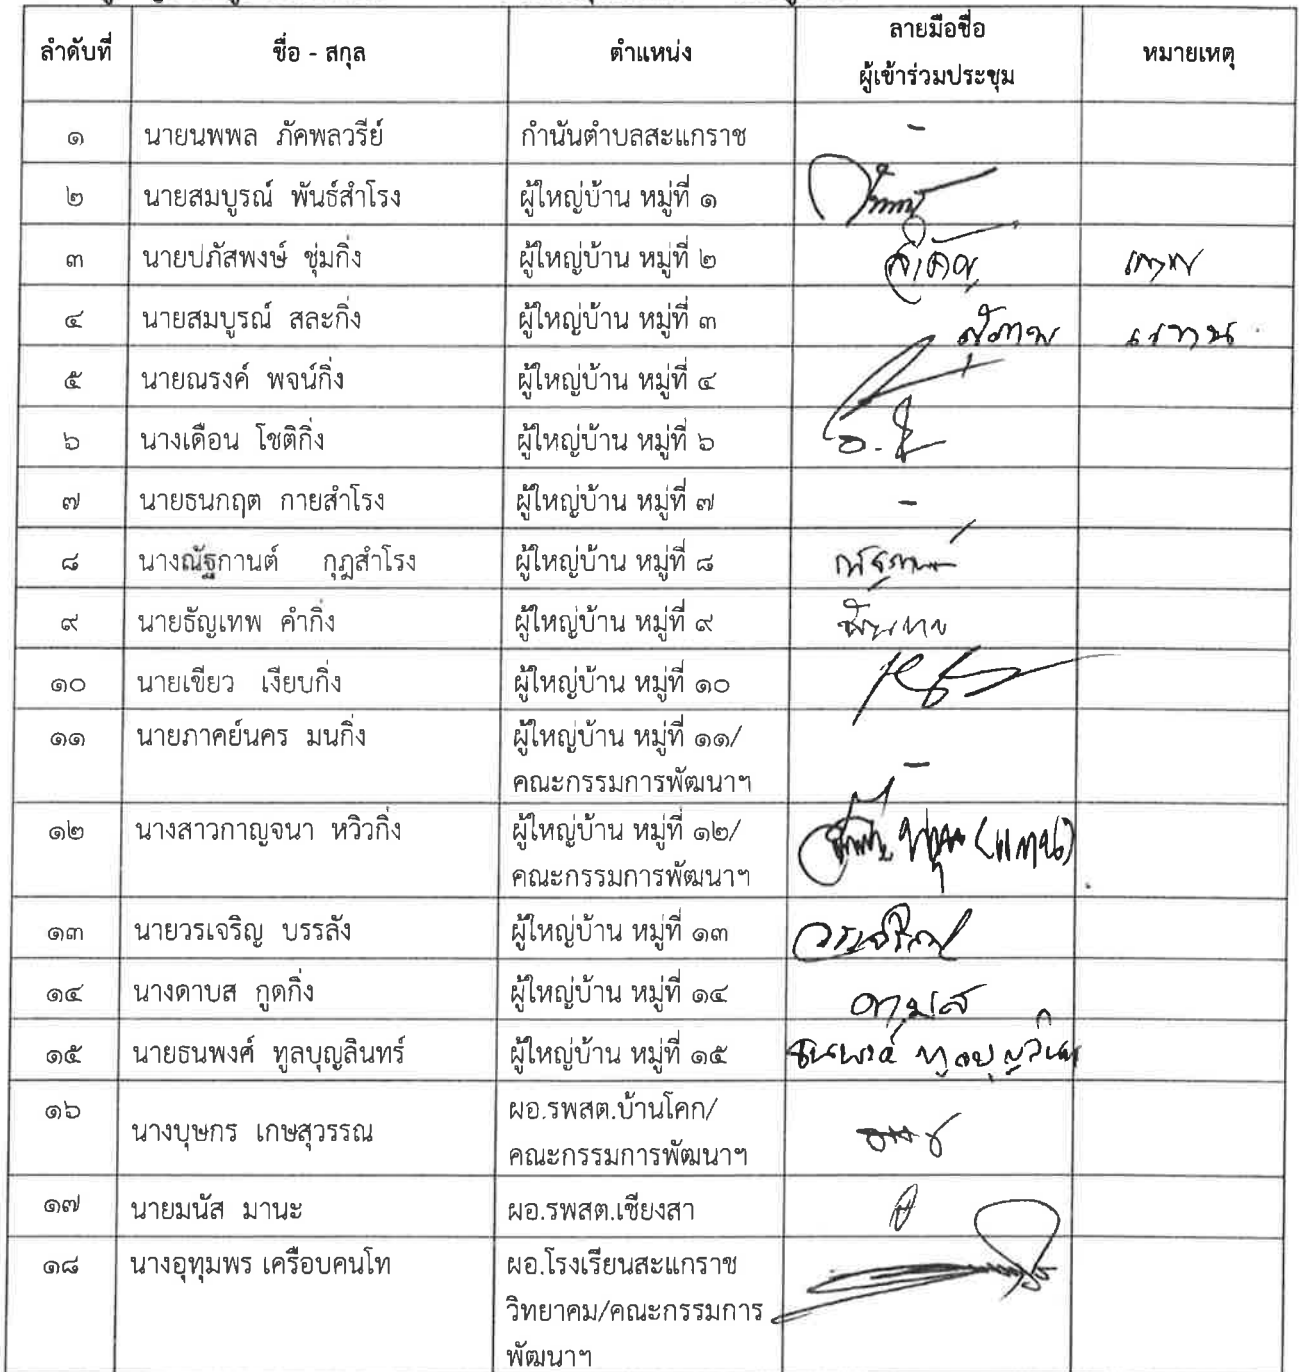 ลำดับที่ ชื่อ - สกุล ตำแหน่ง ลายมือชื่อ หมายเหตุ
ผู้เข้าร่วมประชุม
๑ นายนพพล ภัคพลวรีย์ กำนันตำบลสะแกราช -
๒ นายสมบูรณ์ พันธ์สำโรง ผู้ใหญ่บ้าน หมู่ที่ ๑
๓ นายปภัสพงษ์ ชุ่มกิ่ง ผู้ใหญ่บ้าน หมู่ที่ ๒
๔ นายสมบูรณ์ สละกิ่ง ผู้ใหญ่บ้าน หมู่ที่ ๓
๕ นายณรงค์ พจน์กิ่ง ผู้ใหญ่บ้าน หมู่ที่ ๔
๖ นางเดือน โชติกิ่ง ผู้ใหญ่บ้าน หมู่ที่ ๖
๗ นายธนกฤต กายสำโรง ผู้ใหญ่บ้าน หมู่ที่ ๗ -
๘ นางณัฐกานต์ กุฎสำโรง ผู้ใหญ่บ้าน หมู่ที่ ๘
๙ นายธัญเทพ คำกิ่ง ผู้ใหญ่บ้าน หมู่ที่ ๙
๑๐ นายเขียว เงียบกิ่ง ผู้ใหญ่บ้าน หมู่ที่ ๑๐
๑๑ นายภาคย์นคร มนกิ่ง ผู้ใหญ่บ้าน หมู่ที่ ๑๑/
คณะกรรมการพัฒนาฯ -
๑๒ นางสาวกาญจนา หวิวกิ่ง ผู้ใหญ่บ้าน หมู่ที่ ๑๒/
คณะกรรมการพัฒนาฯ (แทน)
๑๓ นายวรเจริญ บรรลัง ผู้ใหญ่บ้าน หมู่ที่ ๑๓ วรเจริญ
๑๔ นางดาบส กูดกิ่ง ผู้ใหญ่บ้าน หมู่ที่ ๑๔ ดาบส
๑๕ นายธนพงศ์ ทูลบุญลินทร์ ผู้ใหญ่บ้าน หมู่ที่ ๑๕ ธนพงศ์ ทูลบุญลินทร์
๑๖ นางบุษกร เกษสุวรรณ ผอ.รพสต.บ้านโคก/
คณะกรรมการพัฒนาฯ
๑๗ นายมนัส มานะ ผอ.รพสต.เชียงสา
๑๘ นางอุทุมพร เครือบคนโท ผอ.โรงเรียนสะแกราช
วิทยาคม/คณะกรรมการ
พัฒนาฯ